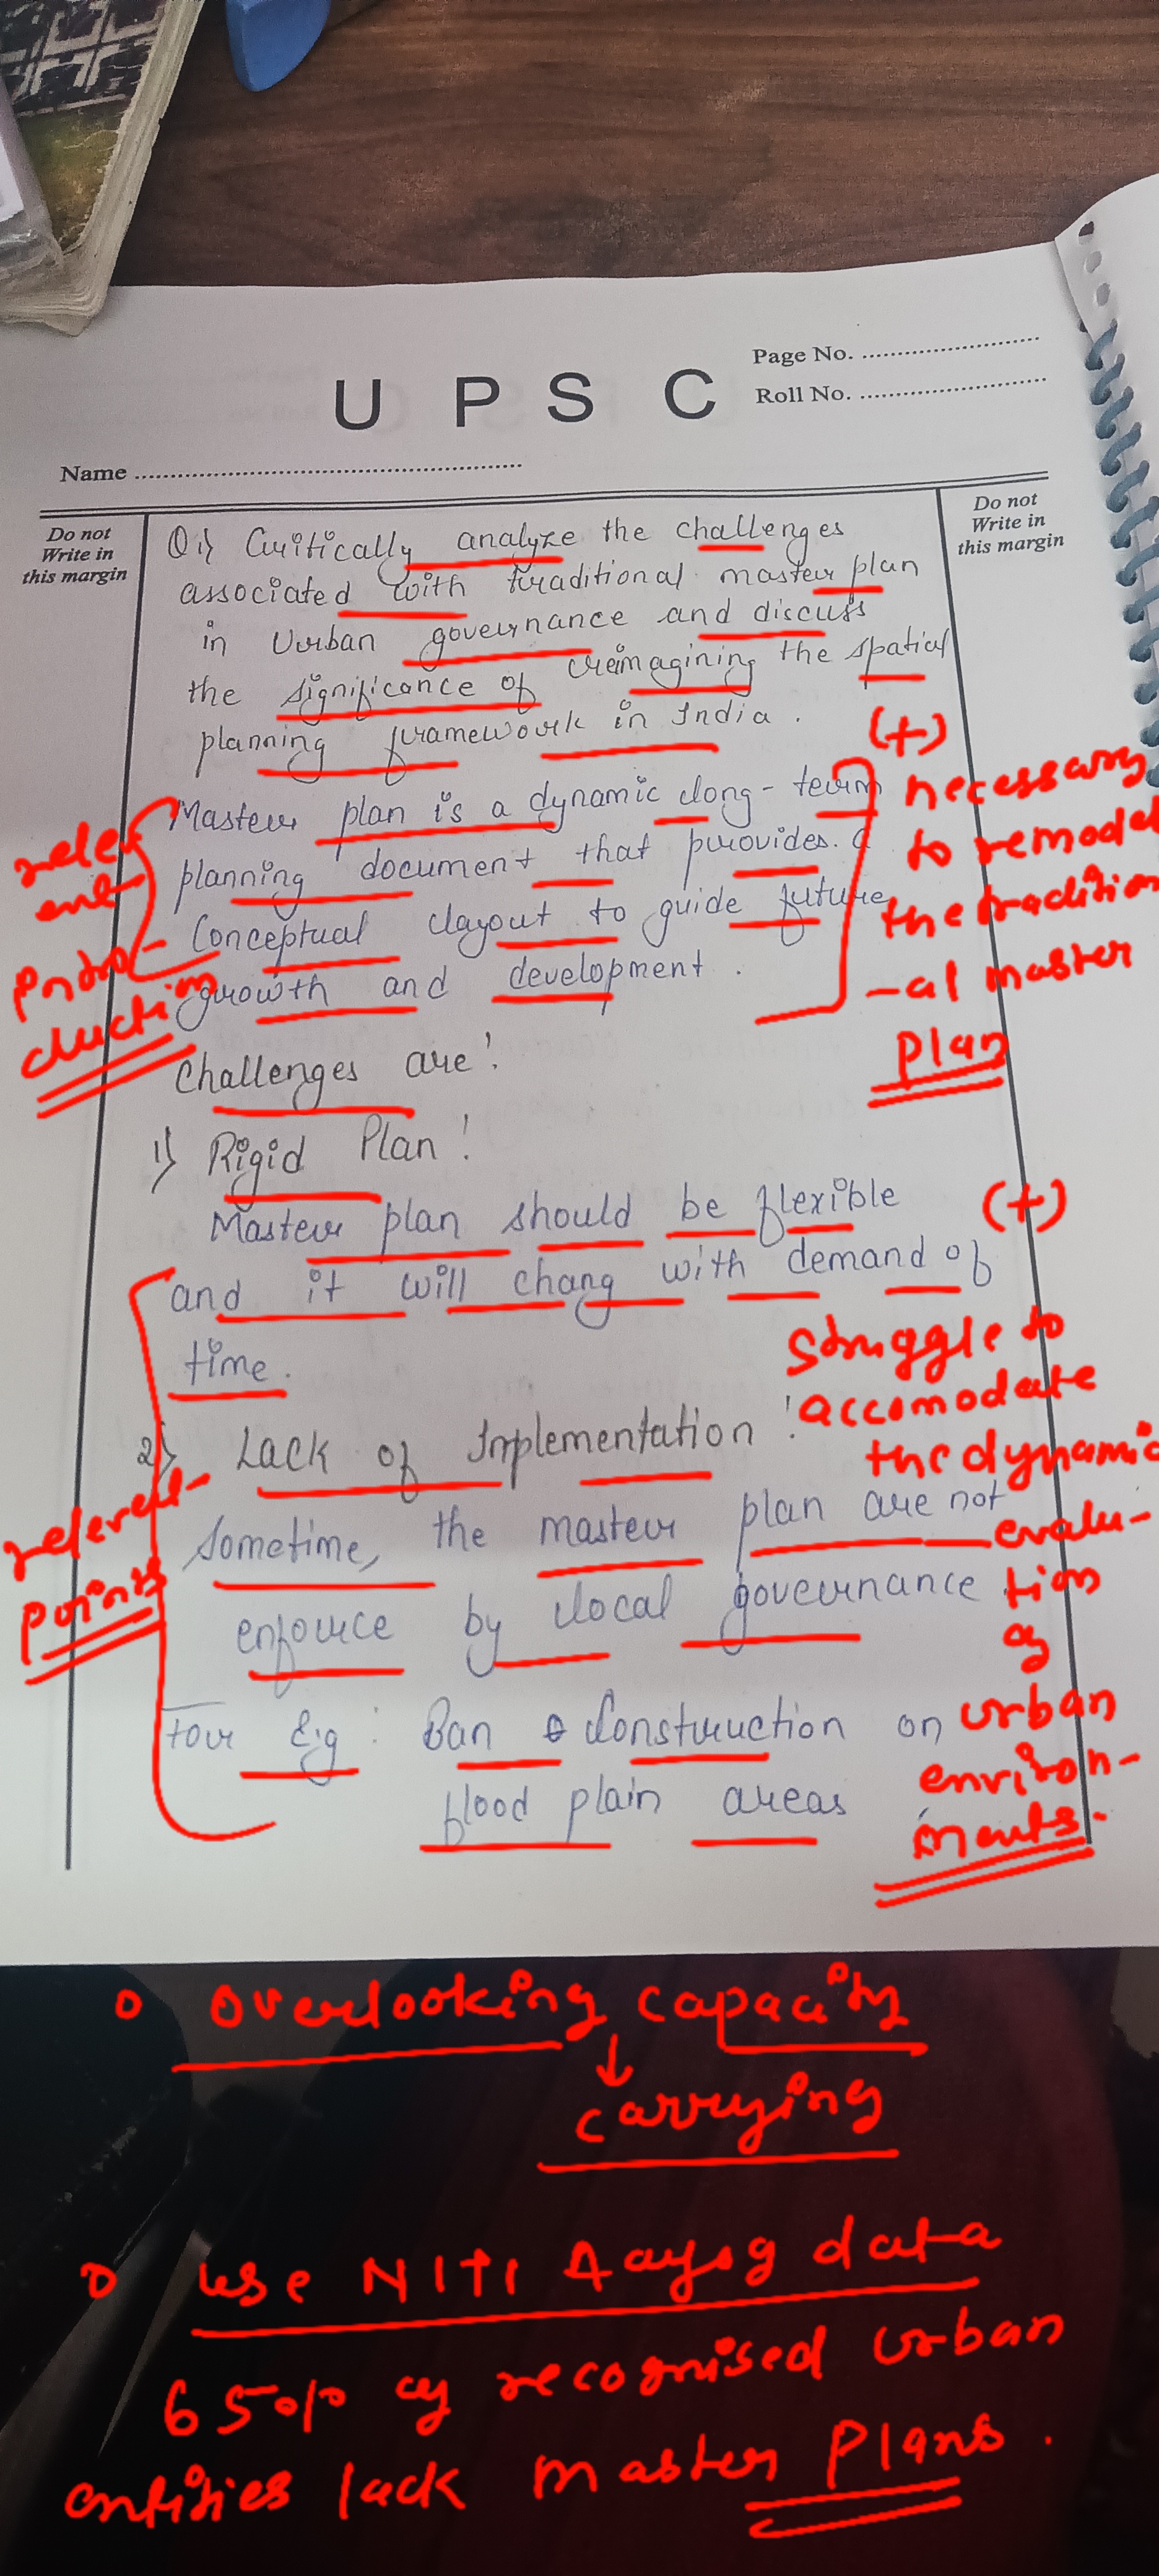 UPSC
Page No.
Roll No.
Name
Do not
Write in
this margin
Do not
Write in
this margin
Q1) Critically analyze the challenges
associated with traditional master plan
in Urban governance and discuss
the significance of reimagining the spatial
planning framework in India.
Master plan is a dynamic long-term
planning document that provides a
Conceptual layout to guide future
growth and development.
(+)
necessary
to remodel
the tradition
-al master
plan
Challenges are!
1) Rigid Plan!
Master plan should be flexible
and it will chang with demand of
time.
(+)
struggle to
accomodate
the dynamic
evalu-
tion
of
urban
environ-
ments.
2) Lack of Implementation!
sometime, the master plan are not
enforce by local governance
For Eg: Ban Construction on
flood plain areas
points
overlooking capacity
↓
carrying
use NITI Aayog data
65% of recognised urban
entities lack master plans.